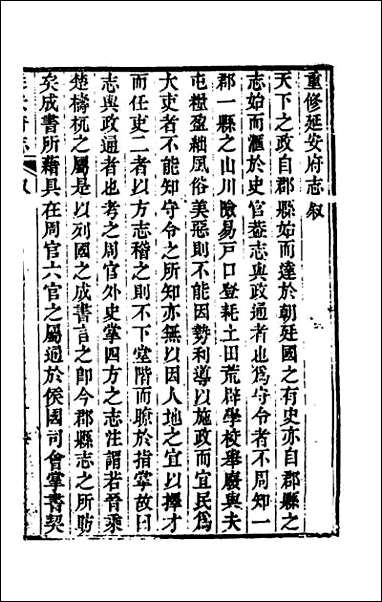 重修延安府志叙
天下之政自郡縣始而達於朝廷國之有史亦自郡縣之
志始而滙於史官葢志與政通者也爲守令者不周知一
郡一縣之山川險易戸口登耗土田荒辟學校舉廢與夫
屯糧盈絀風俗美惡則不能因勢利導以施政而宜民爲
大吏者不能知守令之所知亦無以因人地之宜以擇才
而任吏二者以方志稽之則不下堂階而瞭於指掌故曰
志與政通者也考之周官外史掌四方之志注謂若晉乘
楚檮杌之屬是以列國之成書言之卽今郡縣志之所昉
矣成書所藉具在周官六官之屬通於侯國司會掌書契